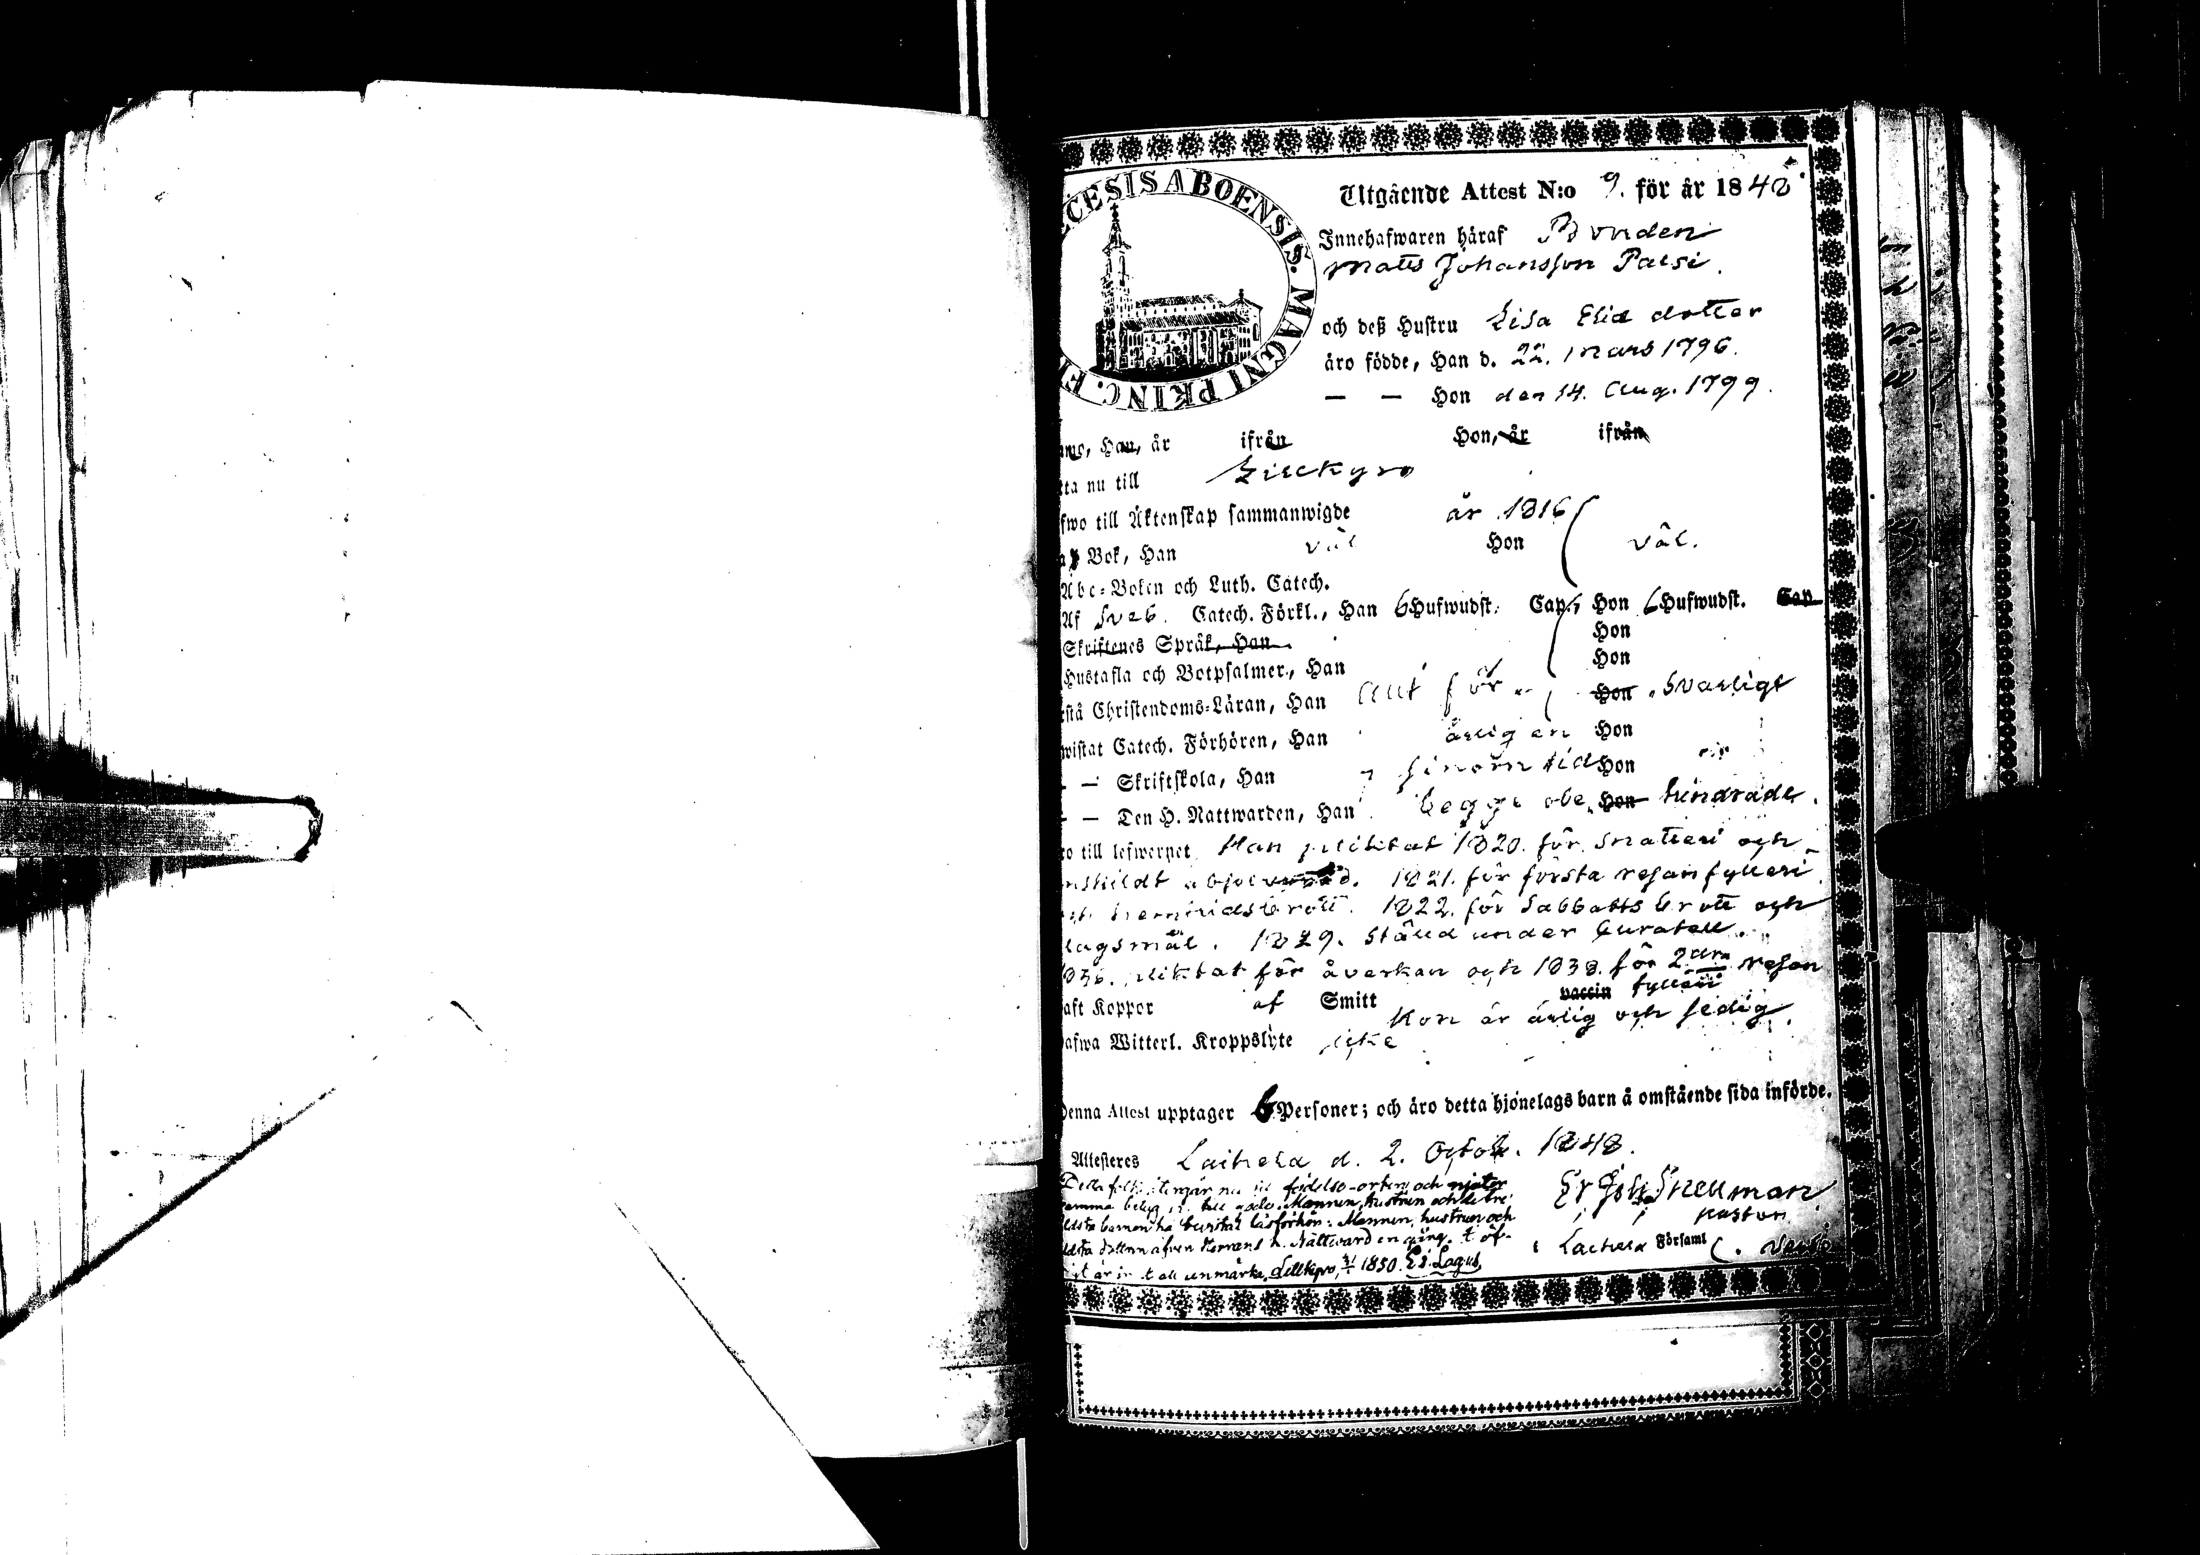 CESIS ABOENSIS. MAGNI PRINC. FI
Utgående Attest N:o 9. för år 1848
Innehafwaren häraf Bonden
Matts Johansson Palsi.
och deß Hustru Lisa Elias dotter
äro födde, Han d. 22. Mars 1796.
— — Hon den 14. Aug. 1799.
Han, år ifrån Hon, år ifrån
nu till Lillkyro
till Äktenskap sammanwigde år 1816
Bok, Han väl Hon väl.
Abc-Boken och Luth. Catech.
Af Sveb. Catech. Förkl., Han 6 Hufwudst. Cap., Hon 6 Hufwudst. Cap
Skriftenes Språk, Han Hon
Hustafla och Botpsalmer, Han Hon
Christendoms-Läran, Han för Hon svarligt
wistat Catech. Förhören, Han årligen Hon
— — Skriftskola, Han sinom tid Hon
— — Den H. Nattwarden, Han begge obe Hon hindrade.
till lefwernet Han pliktat 1820. för snatteri och
enskildt 1821. för första resan fylleri
och 1822. för Sabbatts brott och
lagsmål. 1829. Ställd under Curatell.
pliktat för åverkan och 1838. för 2dra resan
haft Koppor af Smitt vaccin fylleri
Hon är ärlig och sedig.
hafwa Witterl. Kroppslyte icke
Denna Attest upptager 6 Personer; och äro detta hjonelags barn å omstående sida införde.
Attesteras Laihela d. 2. Octob. 1848.
Detta folk nu födelse-orten och njuter
samma Mannen, hustrun och de tre
äldsta barnen ha bevistat läsförhör: Mannen, hustrun och
äldsta dottren äfven Herrans h. Nattvard en gång.
Lillkyro, 1850. Er. Lagus
Er Joh Snellman
pastor
i Laihela Församl